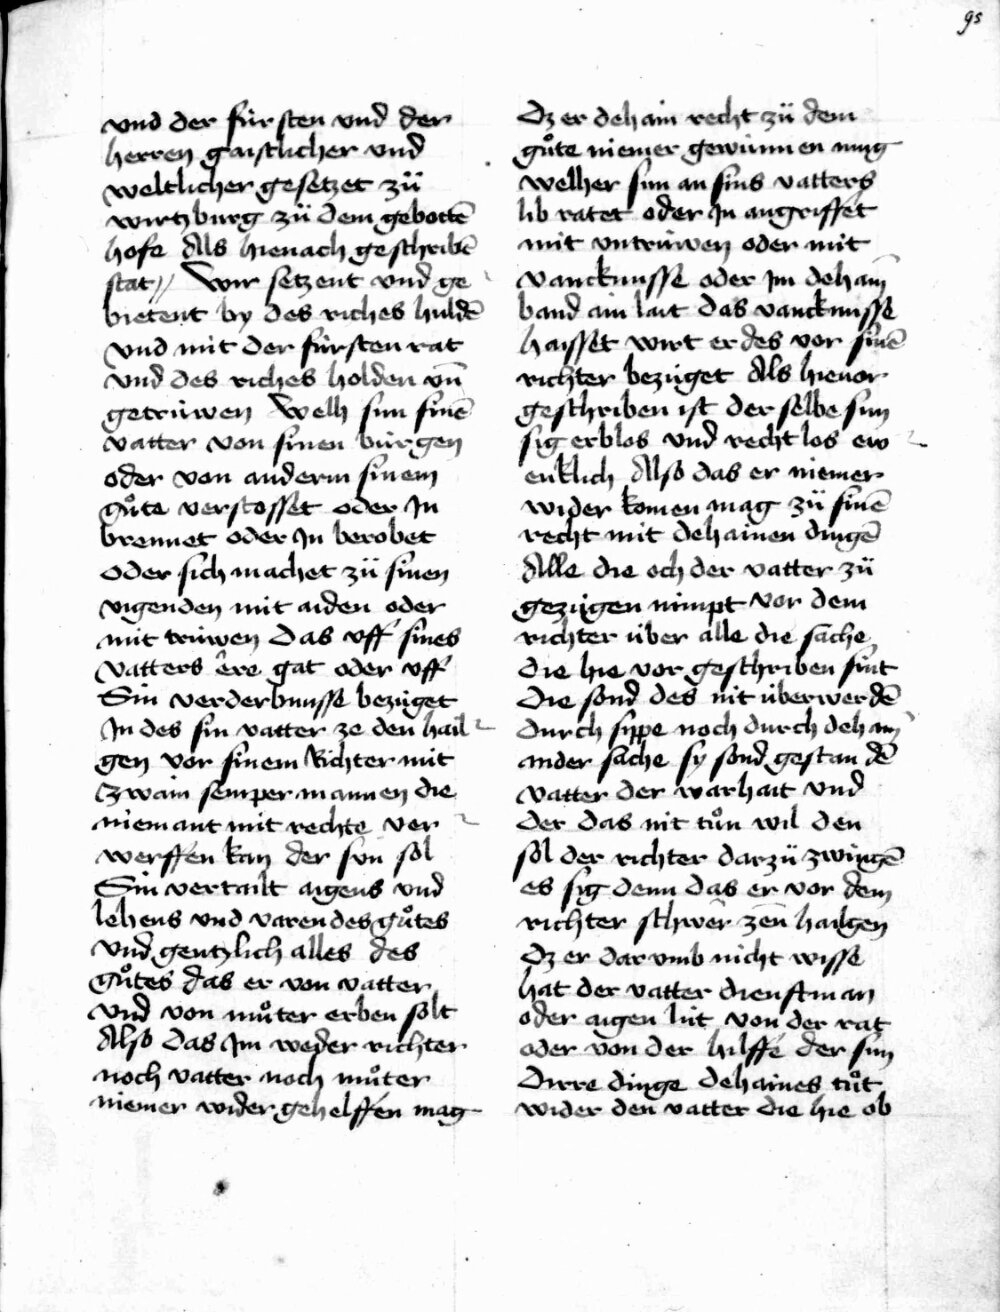 95
vnd der fúrsten vnd der
herren gaistlicher vnd
weltlicher gesetzet zü
wirtzburg zü dem gebottē
hofe Als hienach geschribē
stat // Wir setzent vnd ge
bietent by des riches huldē
vnd mit der fúrsten rat
vnd des riches holden vn̄
getrúwen Welh sun sinē
vatter von sinen búrgen
oder von anderm sinem
gůte verstosset oder In
brennet oder In berobet
oder sich machet zü sinen
vigenden mit aiden oder
mit trúwen das vff sines
vatters ere gat oder vff
Sin verderbnusse bezúget
In des sin vatter ze den hail
gen vor sinem Richter mit
zwain semper mannen die
niemant mit rechte ver
werffen kan der sun sol
Sin vertailt aigens vnd
lehens vnd varendes gůtes
vnd gentzlich alles des
gůtes das er von vatter
vnd von můter erben solt
Also das Im weder richter
noch vatter noch můter
niemer wider gehelffen mag
Dz er dehain recht zü dem
gůte niemer gewinnen mug
welher sun an sins vatters
lib ratet oder In angriffet
mit vntrúwen oder mit
vancknusse oder Im dehain̄
band ain lait das vancknusse
haisset wirt er des vor sinē
richter bezúget Als hieuor
geschriben ist der selbe sun
sig erblos vnd rechtlos ew
enklich Also das er niemer
wider komen mag zü sinē
recht mit dehainen dingē
Alle die och der vatter zü
gezúgen nimpt vor dem
richter úber alle die sache
die hie vor geschriben sint
die sond des nit úberwerdē
durch sippe noch durch dehain̄
ander sache sy sond gestan dē
vatter der warhait vnd
der das nit tůn wil den
sol der richter darzü zwingē
es sig denn das er vor dem
richter schwer zen hailgen
Dz er darumb nicht wisse
hat der vatter dienstman
oder aigen lút von der rat
oder von der hilffe der sun
Dirre dinge dehaines tůt
wider den vatter die hie ob